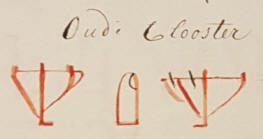 Oude Clooster